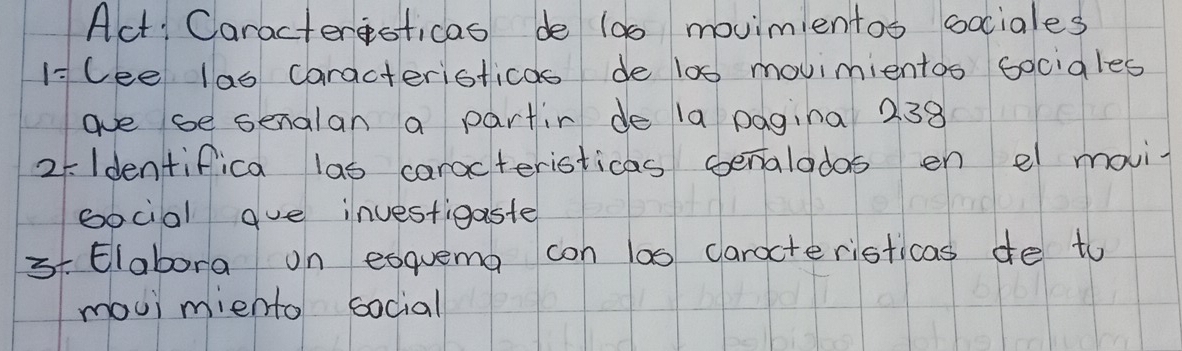 Act: Caracteristicas de las movimientos sociales
1- Lee las caracteristicas de los movimientos sociales
que se señalan a partir de la pagina 238
2- Identifica las caracteristicas señaladas en el movi-
social que investigaste
3- Elabora un esquema con las caracteristicas de tu
movimiento social